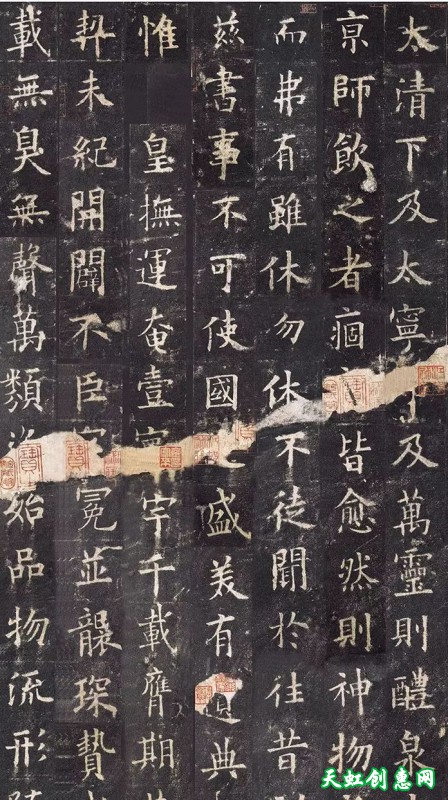 太清下及太寧及萬靈則醴泉
京師飲之者痼皆愈然則神物
而弗有雖休勿休不徒聞於往昔
茲書事不可使國盛美有典
惟 皇撫運奄壹宇千載膺期
契未紀開闢不臣冕並襲琛贄
載無臭無聲萬類始品物流形
天虹创意网